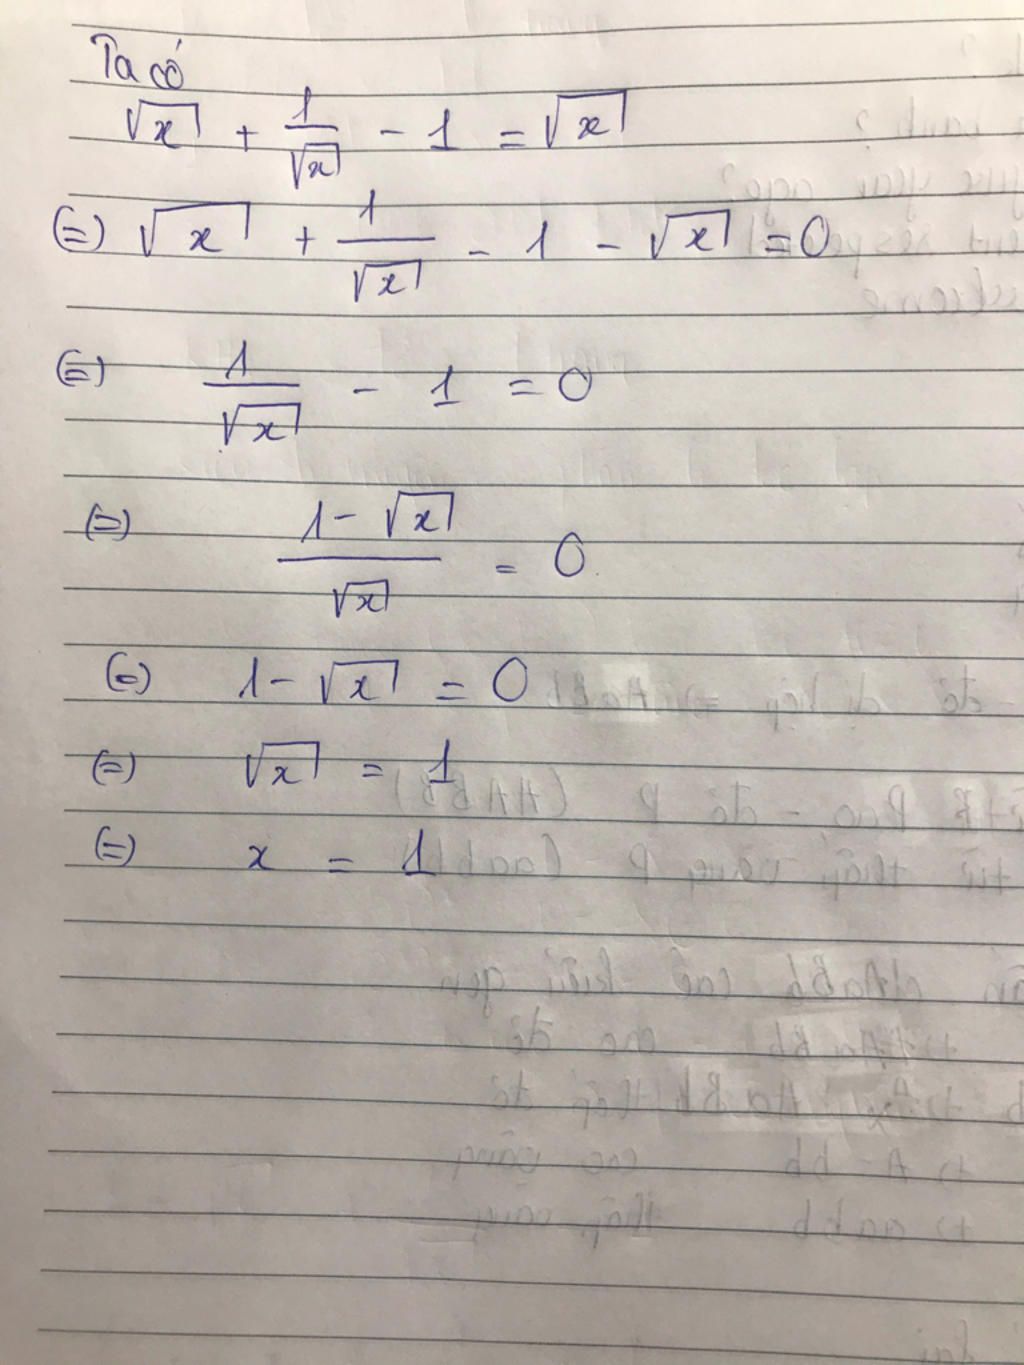 Ta có
√x + 1/√x - 1 = √x
(=) √x + 1/√x - 1 - √x = 0
(=) 1/√x - 1 = 0
(=) (1 - √x)/√x = 0
(=) 1 - √x = 0
(=) √x = 1
(=) x = 1